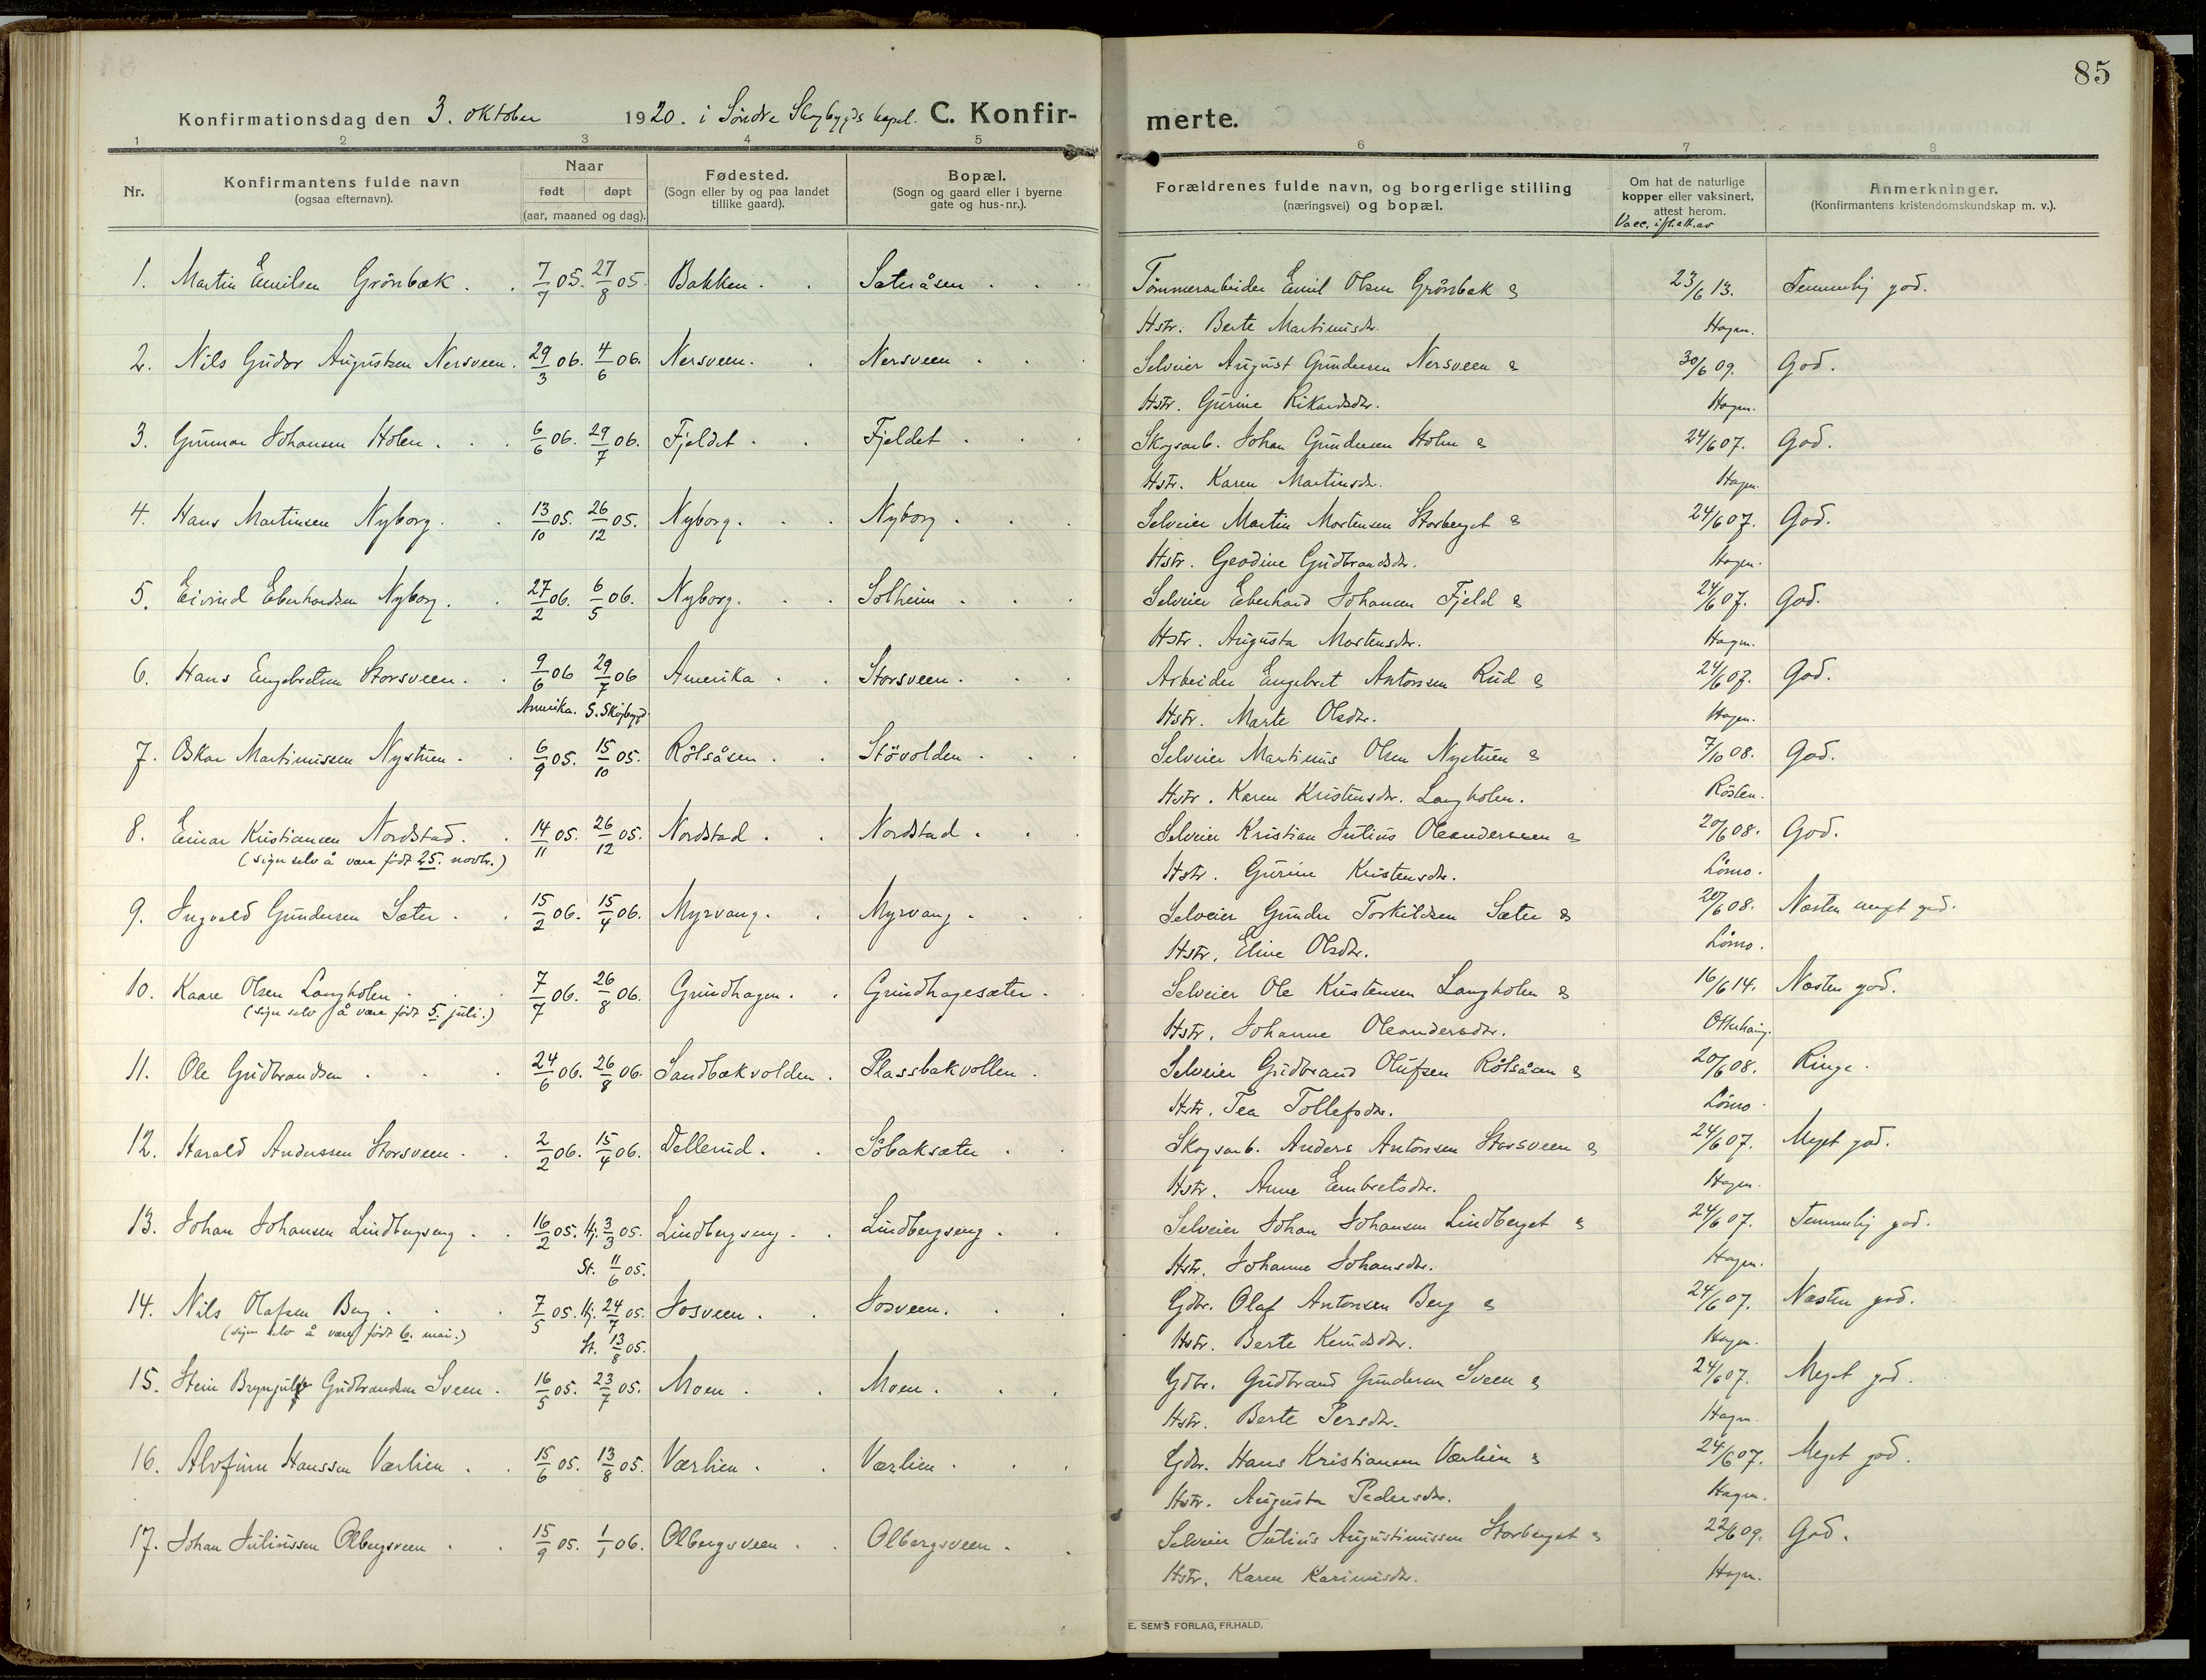 85
Konfirmationsdag den 3. oktober 1920. i Søndre Skogbygds kapel. C. Konfirmerte.
1 2 3 4 5 6 7 8
Nr. Konfirmantens fulde navn (ogsaa efternavn). Naar født døpt (aar, maaned og dag). Fødested. (Sogn eller by og paa landet tillike gaard). Bopæl. (Sogn og gaard eller i byerne gate og hus-nr.). Forældrenes fulde navn, og borgerlige stilling (næringsvei) og bopæl. Om hat de naturlige kopper eller vaksinert, attest herom. Vacc. ifl. att. av Anmerkninger. (Konfirmantens kristendomskundskap m. v.).
1. Martin Emilsen Grönbæk. 7/7 05. 27/8 05. Bakken. Sæteråsen. Tømmerarbeider Emil Olsen Grönbæk & 23/6 13. Temmelig god.
Hstr. Berte Martinusdr. Hagen.
2. Nils Gudor Augustsen Nersveen. 29/3 06. 4/6 06. Nersveen. Nersveen. Selveier August Gundersen Nersveen & 30/6 09. God.
Hstr. Gurine Rikardsdr. Hagen.
3. Gunnar Johansen Holen. 6/6 06. 29/7 06. Fjeldet. Fjeldet. Skogsarb. Johan Gundersen Holen & 24/6 07. God.
Hstr. Karen Martinsdr. Hagen.
4. Hans Martinsen Nyborg. 13/10 05. 26/12 05. Nyborg. Nyborg. Selveier Martin Mortensen Storberget & 24/6 07. God.
Hstr. Geodine Gudbrandsdr. Hagen.
5. Eivind Eberhardsen Nyborg. 27/2 06. 6/5 06. Nyborg. Solheim. Selveier Eberhard Johansen Fjeld & 24/6 07. God.
Hstr. Augusta Mortensdr. Hagen.
6. Hans Engebretsen Storsveen. 9/6 06 29/7 06 Amerika. Storsveen. Arbeider Engebret Antonsen Rud & 24/6 07. God.
Amerika. S. Skogbygd. Hstr. Marte Olsdr. Hagen.
7. Oskar Martinussen Nystuen. 6/9 05. 15/10 05. Rölsåsen. Stövolden. Selveier Martinus Olsen Nystuen & 7/10 08. God.
Hstr. Karen Kristensdr. Langholen. Rösten.
8. Einar Kristiansen Nordstad. 14/11 05. 26/12 05. Nordstad. Nordstad. Selveier Kristian Julius Oleanderssen & 20/6 08. God.
(sign selv å være født 25. novbr.) Hstr. Gurine Kristensdr. Lömo.
9. Ingvald Gundersen Sæter. 15/2 06. 15/4 06. Myrvang. Myrvang. Selveier Gunder Torkildsen Sæter & 20/6 08. Næsten meget god.
Hstr. Eline Olsdr. Lömo.
10. Kaare Olsen Langholen. 7/7 06. 26/8 06. Grundhagen. Grundhagesæter. Selveier Ole Kristensen Langholen & 16/6 14. Næsten god.
(sign selv å være født 5. juli.) Hstr. Johanne Oleandersdr.
11. Ole Gudbrandsen. 24/6 06. 26/8 06. Sandbækvolden. Plassbakvollen. Selveier Gudbrand Olufsen Rölsåsen & 20/6 08. Ringe.
Hstr. Tea Tollefsdr. Lömo.
12. Harald Anderssen Storsveen. 2/2 06. 15/4 06. Dellerud. Söbaksæter. Skogsarb. Anders Antonsen Storsveen & 24/6 07. Meget god.
Hstr. Anne Embretsdr. Hagen.
13. Johan Johansen Lindbergseng. 16/2 05. Hj. 3/3 05. Lindbergseng. Lindbergseng. Selveier Johan Johansen Lindberget & 24/6 07. Temmelig god.
St. 11/6 05. Hstr. Johanne Johansdr. Hagen.
14. Nils Olafsen Berg. 7/5 05. Hj. 24/7 05. Josveen. Josveen. Gdbr. Olaf Antonsen Berg & 24/6 07. Næsten god.
(sign selv å være født 6. mai.) St. 13/8 05. Hstr. Berte Knudsdr. Hagen.
15. Stein Brynjulf Gudbrandsen Sveen. 16/5 05. 23/7 05. Moen. Moen. Gdbr. Gudbrand Gundersen Sveen & 24/6 07. Meget god.
Hstr. Berte Persdr. Hagen
16. Alvfinn Hanssen Værlien. 15/6 05. 13/8 05. Værlien. Værlien. Gdbr. Hans Kristiansen Værlien & 24/6 07. Meget god.
Hstr. Augusta Pedersdr. Hagen.
17. Johan Juliussen Olbergsveen. 15/9 05. 1/1 06. Olbergsveen. Olbergsveen. Selveier Julius Augustinussen Storberget & 22/6 09. God.
Hstr. Karen Karinusdr. Hagen.
E. SEM'S FORLAG, FR.HALD.